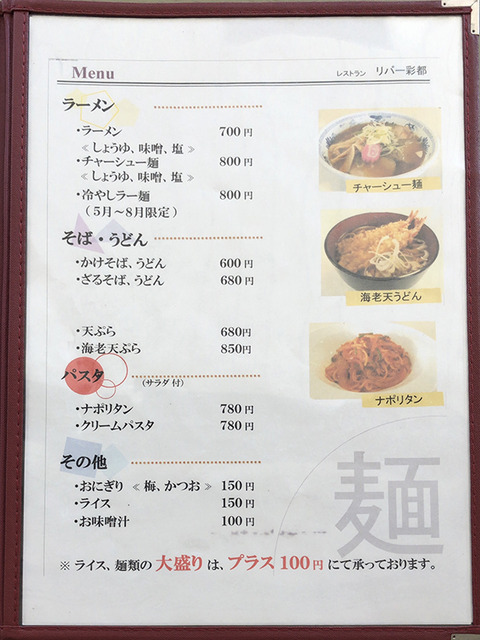 Menu
レストラン リバー彩都
ラーメン
・ラーメン 700円
≪ しょうゆ、味噌、塩 ≫
・チャーシュー麺 800円
≪ しょうゆ、味噌、塩 ≫
・冷やしラー麺 800円
（5月～8月限定）
チャーシュー麺
そば・うどん
・かけそば、うどん 600円
・ざるそば、うどん 680円
海老天うどん
・天ぷら 680円
・海老天ぷら 850円
パスタ
（サラダ付）
・ナポリタン 780円
・クリームパスタ 780円
ナポリタン
その他
・おにぎり ≪ 梅、かつお ≫ 150円
・ライス 150円
・お味噌汁 100円
麺
※ ライス、麺類の 大盛り は、プラス 100円 にて承っております。